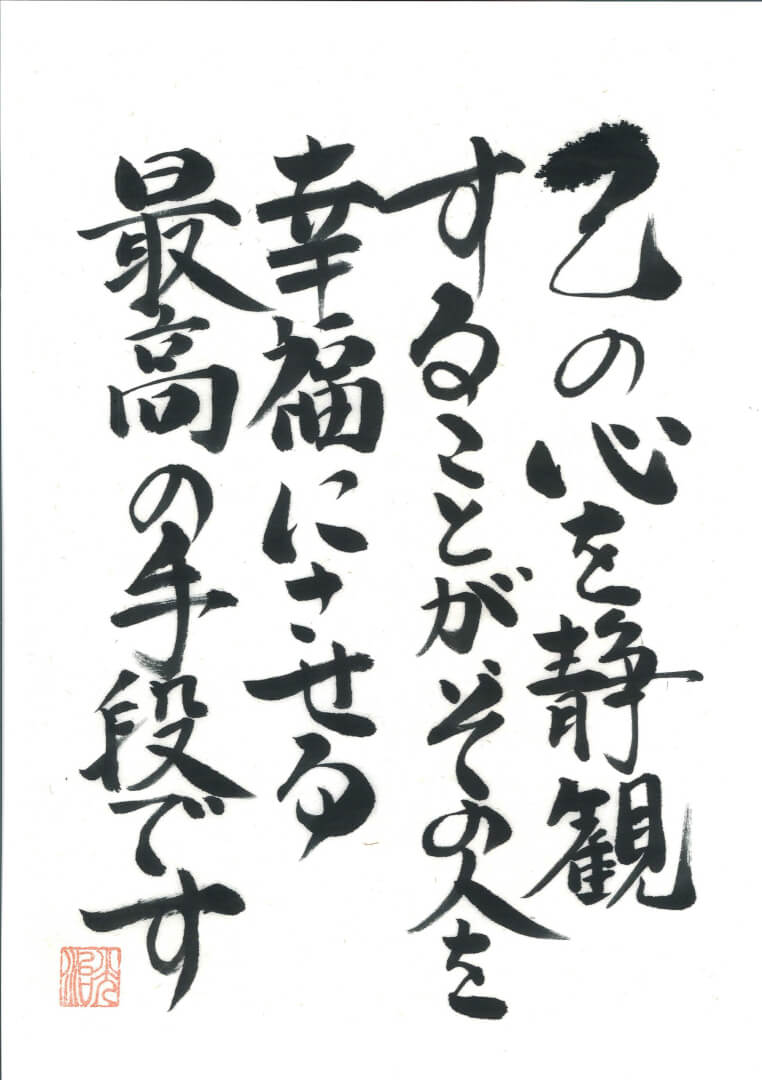 乙の心を静観
することがその人を
幸福にさせる
最高の手段です